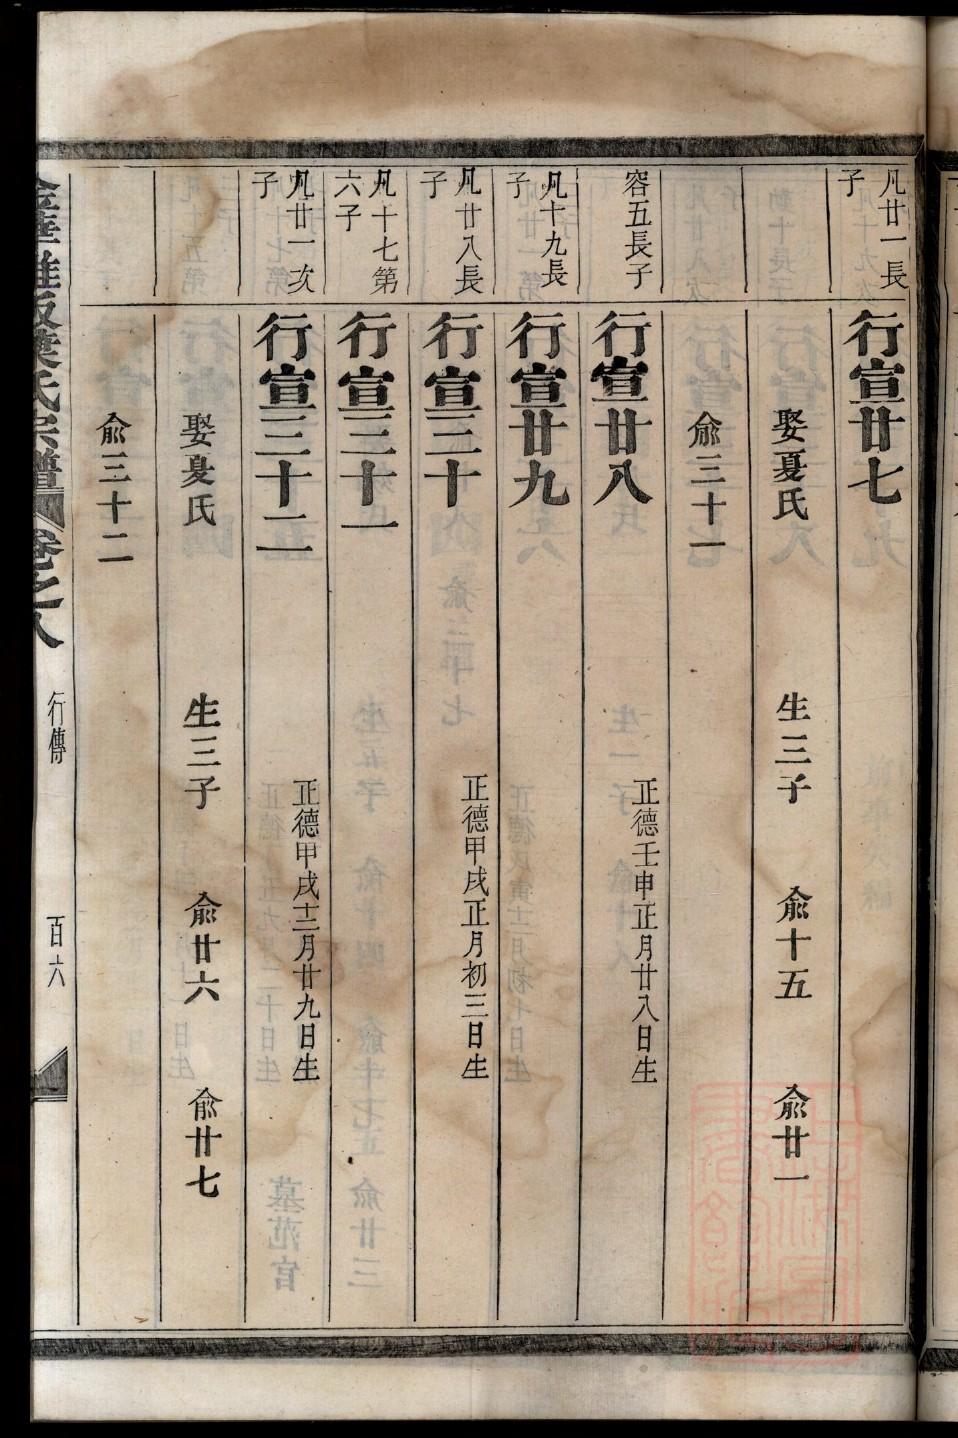 凡廿一長
子
行宣廿七
娶夏氏
生三子
兪十五
兪廿一
兪三十一
容五長子
行宣廿八
正德壬申正月廿八日生
凡十九長
子
行宣廿九
凡廿八長
子
行宣三十
正德甲戌正月初三日生
凡十七第
六子
行宣三十一
凡廿一次
子
行宣三十二
正德甲戌十二月廿九日生
娶夏氏
生三子
兪廿六
兪廿七
兪三十二
氏宗譜
卷之八
行傳
百六